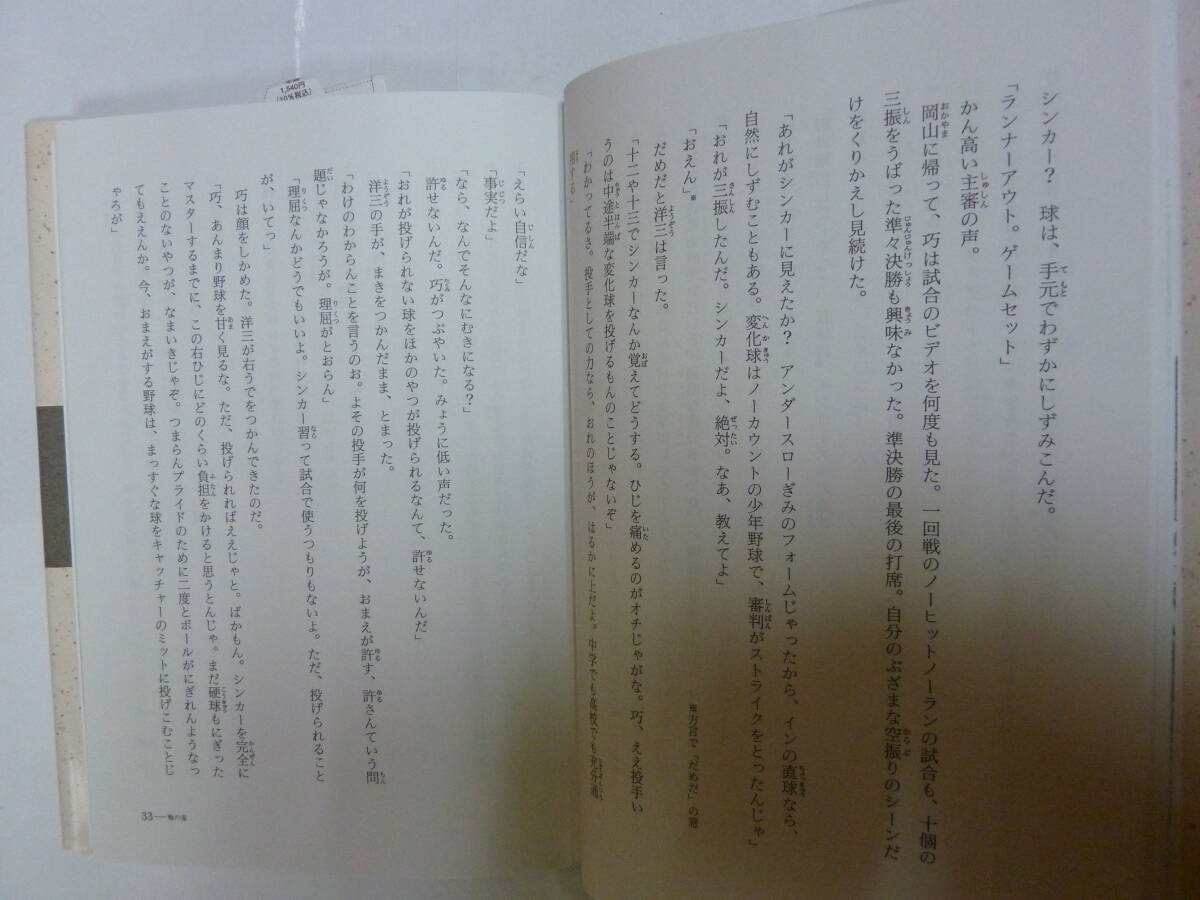 シンカー？　球は、手元でわずかにしずみこんだ。
「ランナーアウト。ゲームセット」
かん高い主審の声。
岡山に帰って、巧は試合のビデオを何度も見た。一回戦のノーヒットノーランの試合も、十個の
三振をうばった準々決勝も興味なかった。準決勝の最後の打席。自分のぶざまな空振りのシーンだ
けをくりかえし見続けた。
「あれがシンカーに見えたか？　アンダースローぎみのフォームじゃったから、インの直球なら、
自然にしずむこともある。変化球はノーカウントの少年野球で、審判がストライクをとったんじゃ」
「おれが三振したんだ。シンカーだよ、絶対。なあ、教えてよ」
「おえん」※
※方言で「だめだ」の意
だめだと洋三は言った。
「十二や十三でシンカーなんか覚えてどうする。ひじを痛めるのがオチじゃがな。巧、ええ投手い
うのは中途半端な変化球を投げるもんのことじゃないぞ」
「わかってるさ。投手としての力なら、おれのほうが、はるかに上だよ。中学でも高校でも充分通
用する」
「えらい自信だな」
「事実だよ」
「なら、なんでそんなにむきになる？」
許せないんだ。巧がつぶやいた。みょうに低い声だった。
「おれが投げられない球をほかのやつが投げられるなんて、許せないんだ」
洋三の手が、まきをつかんだまま、とまった。
「わけのわからんことを言うのお。よその投手が何を投げようが、おまえが許す、許さんていう問
題じゃなかろうが。理屈がとおらん」
「理屈なんかどうでもいいよ。シンカー習って試合で使うつもりもないよ。ただ、投げられること
が、いてっ」
巧は顔をしかめた。洋三が右うでをつかんできたのだ。
「巧、あんまり野球を甘く見るな。ただ、投げられればええじゃと。ばかもん。シンカーを完全に
マスターするまでに、この右ひじにどのくらい負担をかけると思うとんじゃ。まだ硬球もにぎった
ことのないやつが、なまいきじゃぞ。つまらんプライドのために二度とボールがにぎれんようなっ
てもええんか。今、おまえがする野球は、まっすぐな球をキャッチャーのミットに投げこむことじ
ゃろが」
33
1,540円
(10%税込)